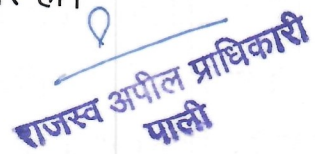 राजस्व अपील प्राधिकारी
पाली